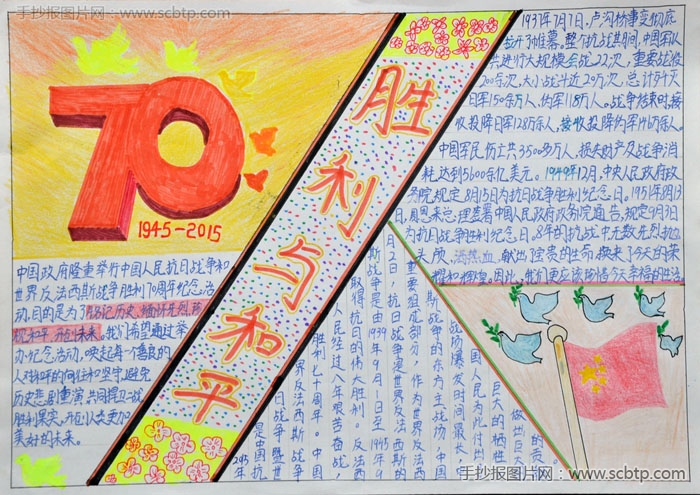 手抄报图片网 - www.scbtp.com
70
1945-2015
胜利与和平
中国政府隆重举行中国人民抗日战争和
世界反法西斯战争胜利70周年纪念活
动,目的是为了铭记历史、缅怀先烈、珍
视和平、开创未来。我们希望通过举
办纪念活动,唤起每个善良的
人对和平的向往和坚守,避免
历史悲剧重演,共同捍卫二战
胜利果实,开创人类更加
美好的未来。
1937年7月7日,卢沟桥事变彻底
拉开了帷幕。整个抗战其间,中国军队
共进行大规模会战22次,重要战役
200余次,大小战斗近20万次,总计歼灭
日军150余万人,伪军118万人。战争结束时,接
收投降日军128万余人,接收投降伪军146万余人。
中国军民伤亡共3500多万人,损失财产及战争消
耗达到5600余亿美元。1949年12月,中央人民政府政
务院规定8月15日为抗日战争胜利纪念日。1951年8月13
日,周恩来总理签署中国人民政府政务院通告,规定9月3日
为抗日战争胜利纪念日。8年的抗战中无数先烈抛
头颅、洒热血,献出宝贵的生命,换来了今天的荣
耀和辉煌。因此,我们更应该珍惜今天幸福的生活
的贡
做出巨大
巨大的牺牲
国人民为此付出
战场爆发时间最长,中
斯战争的东方主战场,中国
重要组成部分,作为世界反法西
月2日,抗日战争是世界反法西斯的
斯战争是由1939年9月1日至1945年9
取得抗日的伟大胜利。反法西
人民经过八年艰苦奋战,
胜利七十周年。中国
界反法西斯战争
日战争暨世
是中国抗
手抄报图片网 - www.scbtp.com